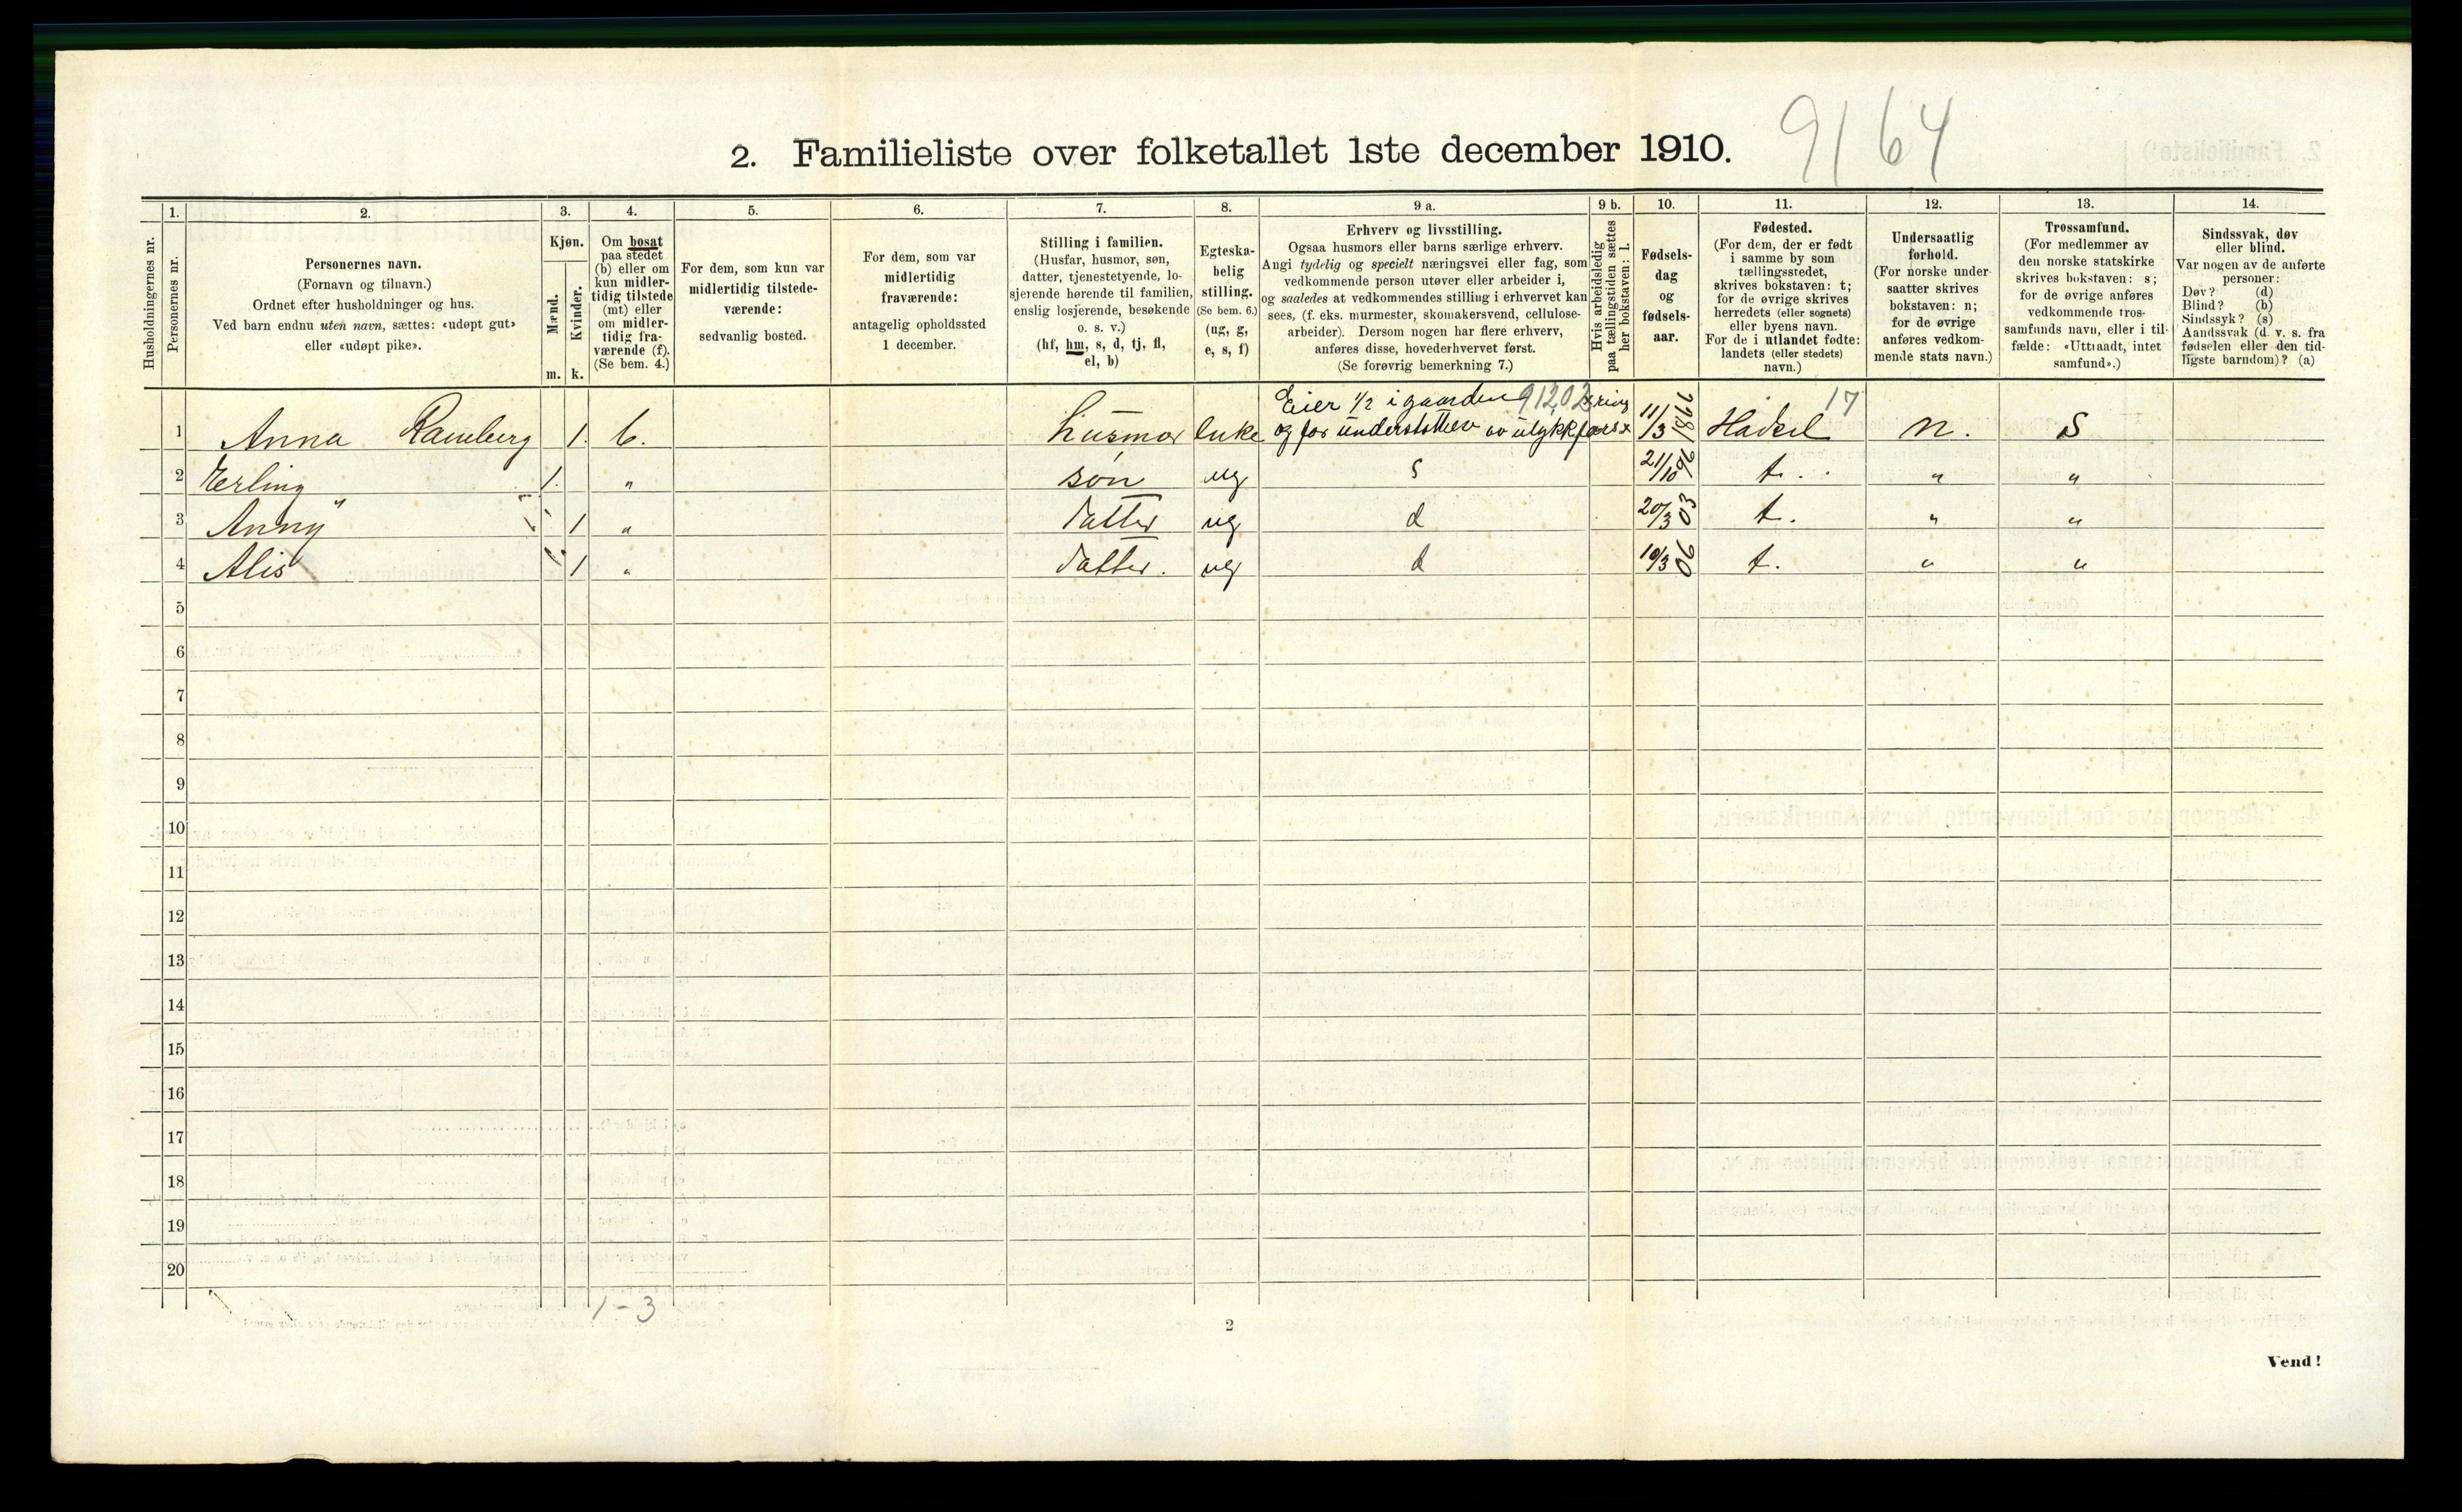 2. Familieliste over folketallet 1ste december 1910.
9164
1. 2. 3. 4. 5. 6. 7. 8. 9 a. 9 b. 10. 11. 12. 13. 14.
Husholdningernes nr.
Personernes nr.
Personernes navn.
(Fornavn og tilnavn.)
Ordnet efter husholdninger og hus.
Ved barn endnu uten navn, sættes: «udøpt gut»
eller «udøpt pike».
Kjøn.
Mænd.
Kvinder.
m. k.
Om bosat
paa stedet
(b) eller om
kun midler-
tidig tilstede
(mt) eller
om midler-
tidig fra-
værende (f).
(Se bem. 4.)
For dem, som kun var
midlertidig tilstede-
værende:
sedvanlig bosted.
For dem, som var
midlertidig
fraværende:
antagelig opholdssted
1 december.
Stilling i familien.
(Husfar, husmor, søn,
datter, tjenestetyende, lo-
sjerende hørende til familien,
enslig losjerende, besøkende
o. s. v.)
(hf, hm, s, d, tj, fl,
el, b)
Egteska-
belig
stilling.
(Se bem. 6.)
(ug, g,
e, s, f)
Erhverv og livsstilling.
Ogsaa husmors eller barns særlige erhverv.
Angi tydelig og specielt næringsvei eller fag, som
vedkommende person utøver eller arbeider i,
og saaledes at vedkommendes stilling i erhvervet kan
sees, (f. eks. murmester, skomakersvend, cellulose-
arbeider). Dersom nogen har flere erhverv,
anføres disse, hovederhvervet først.
(Se forøvrig bemerkning 7.)
Hvis arbeidsledig
paa tællingstiden sættes
her bokstaven: l.
Fødsels-
dag
og
fødsels-
aar.
Fødested.
(For dem, der er født
i samme by som
tællingsstedet,
skrives bokstaven: t;
for de øvrige skrives
herredets (eller sognets)
eller byens navn.
For de i utlandet fødte:
landets (eller stedets)
navn.)
Undersaatlig
forhold.
(For norske under-
saatter skrives
bokstaven: n;
for de øvrige
anføres vedkom-
mende stats navn.)
Trossamfund.
(For medlemmer av
den norske statskirke
skrives bokstaven: s;
for de øvrige anføres
vedkommende tros-
samfunds navn, eller i til-
fælde: «Uttraadt, intet
samfund».)
Sindssvak, døv
eller blind.
Var nogen av de anførte
personer:
Døv? (d)
Blind? (b)
Sindssyk? (s)
Aandssvak (d. v. s. fra
fødselen eller den tid-
ligste barndom)? (a)
Eier 1/2 i gaarden 91202
1 Anna Ramberg 1. b. husmor enke og for 11/3 1866 17 n. S
2 Erling 1. " søn ug s 21/10 96 t. " "
3 Anny " 1 " datter ug d 20/3 03 t. " "
4 Alis 1 " datter. ug d 10/3 06 t. " "
5
6
7
8
9
10
11
12
13
14
15
16
17
18
19
20
1-3
2
Vend!